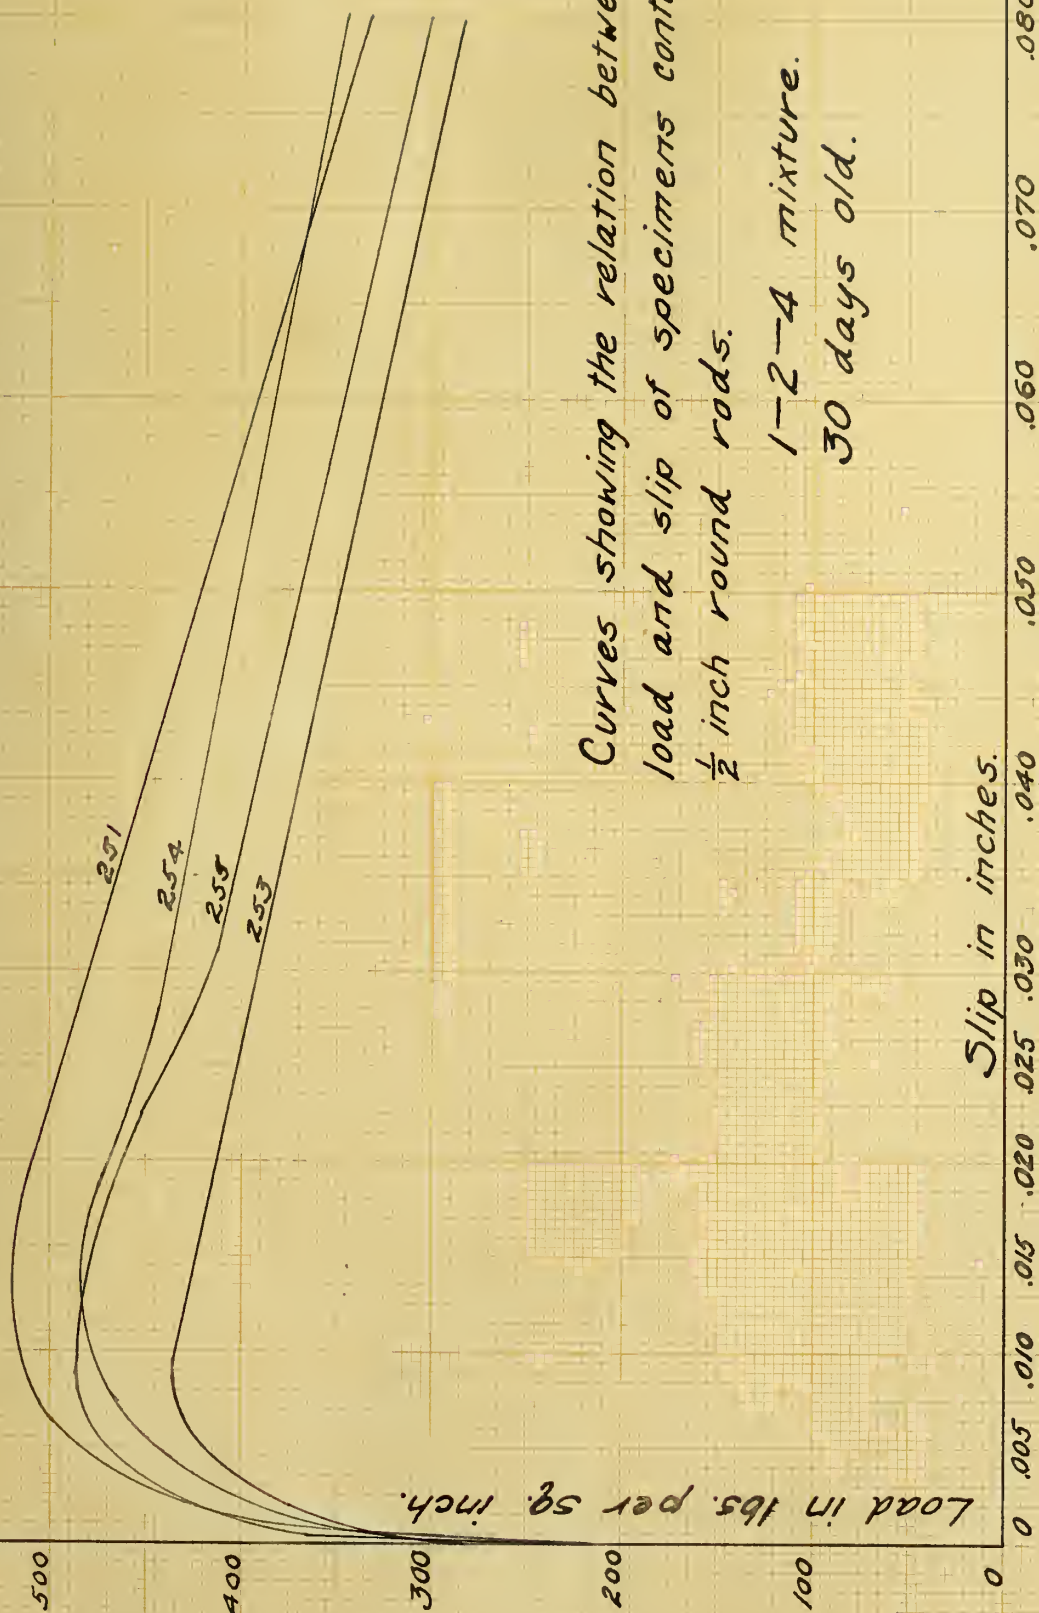 500
400
300
200
100
0
Load in lbs. per sq. inch.
251
254
255
253
Curves showing the relation
load and slip of specimens
½ inch round rods.
1-2-4 mixture.
30 days old.
Slip in inches.
0 .005 .010 .015 .020 .025 .030 .040 .050 .060 .070 .080